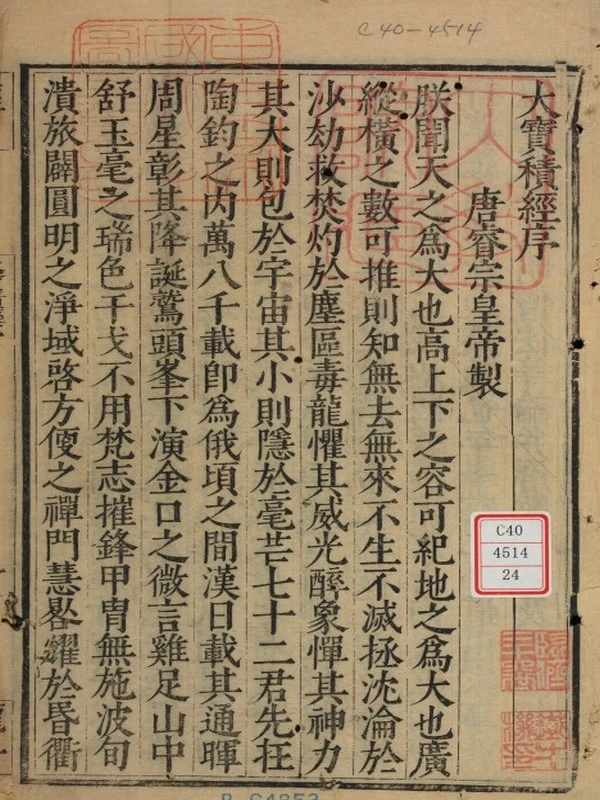 C40-4514
大寶積經序
唐睿宗皇帝製
朕聞天之爲大也高上下之容可紀地之爲大也廣
縱橫之數可推則知無去無來不生不滅拯沈淪於
沙劫救焚灼於塵區毒龍懼其威光醉象憚其神力
其大則包於宇宙其小則隱於毫芒七十二君先在
陶鈞之内萬八千載卽爲俄頃之間漢日載其通暉
周星彰其降誕鷲頭峯下演金口之微言雞足山中
舒玉毫之瑞色干戈不用梵志摧鋒甲冑無施波旬
潰旅闢圓明之淨域啓方便之禪門慧晷耀於昏衢
C40
4514
24